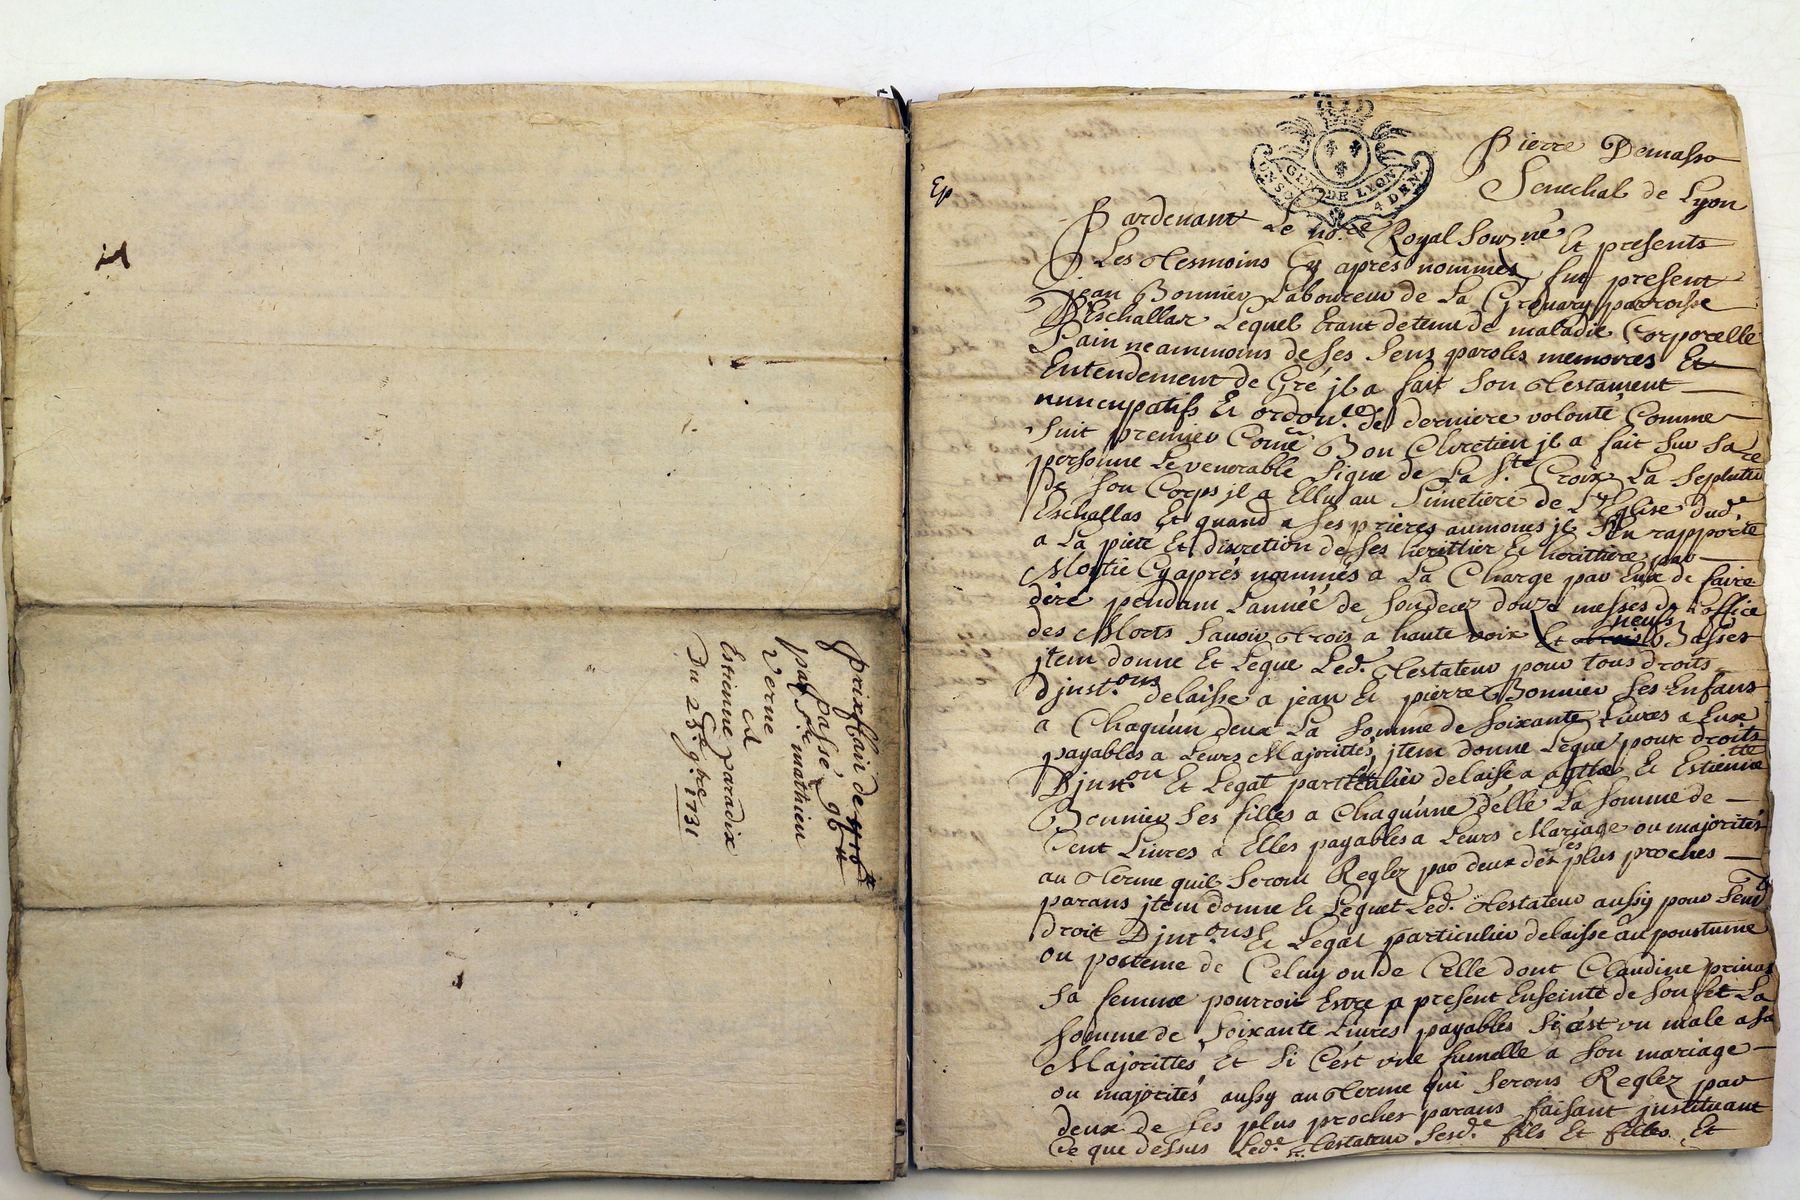 prixffait de
passé 96 ₶
par sr. mathieu
Verne
et
Estienne paradix
Du 23e 9bre 1731
GEN DE LYON
UN SOL 4 DEN
Ep
Pierre Demasso
Senechal de Lyon
Pardevant Le nore. Royal Souzné Et presents
Les tesmoins Cy aprés nommés fut present
jean Bonnier Laboureur de La parroisse
D'Eschallas Lequel Etant detenu de maladie Corporelle
Sain neammoins de ses sens paroles memoires Et
Entendement de Gré jl a fait Son testament
nuncupatifs Et ordonce. de derniere volonté Comme
suit premier Comē Bon Chretien jl a fait sur sa
personne Le venerable signe de La Ste. Croix La Sepulture
de son Corps jl a Ellu au Simetiere de L'Eglise dud.
Eschallas Et quand a ses prieres aumones jl S'en rapporte
a La pieté Et discretion de ses herittier Et herittiere par
Moitie Cy aprés nommés a La Charge par Eux de faire
dire pendant L'année de son decez douze messes de L'office
des Morts Savoir trois a haute voix Et neufs Basses
jtem donne Et Legue Led. testateur pour tous droits
Djnst.ons delaisse a jean Et pierre Bonnier ses Enfans
a Chaqu'un deux La somme de soixante Livres a Eux
payables a Leurs Majorittés, jtem donne Legue pour droits
Djnst.on Et Legat particulier delaisse a Et Estiennette
Bonnier ses filles a Chaqu'une d'elle La somme de
Cent Livres a Elles payables a Leurs Mariage ou majorités
au terme quil Seront Reglez par deux de ses plus proches
parans jtem donne Et Leguet Led. testateur aussy pour
droit Djnt.ons Et Legat particulier delaisse au poustume
ou posteme de Celuy ou de Celle dont Claudine
sa femme pourroit Estre a present Enseinte de son La
somme de soixante Livres payables si c'est un male a sa
Majorittés Et si C'est une fumelle a son mariage
ou majorités aussy au terme qui Serons Reglez par
deux de ses plus proches parans faisant jnstituant
Ce que dessus Led.e testateur Sesd.e fils Et filles Et